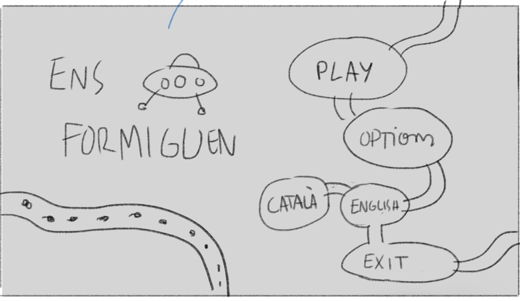 ENS
FORMIGUEN
PLAY
OPTIONS
CATALÀ
ENGLISH
EXIT